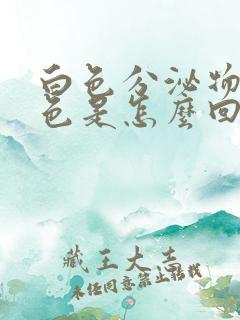 白色分泌物
色是怎麼回
藏王大吉
未经同意禁止搭载